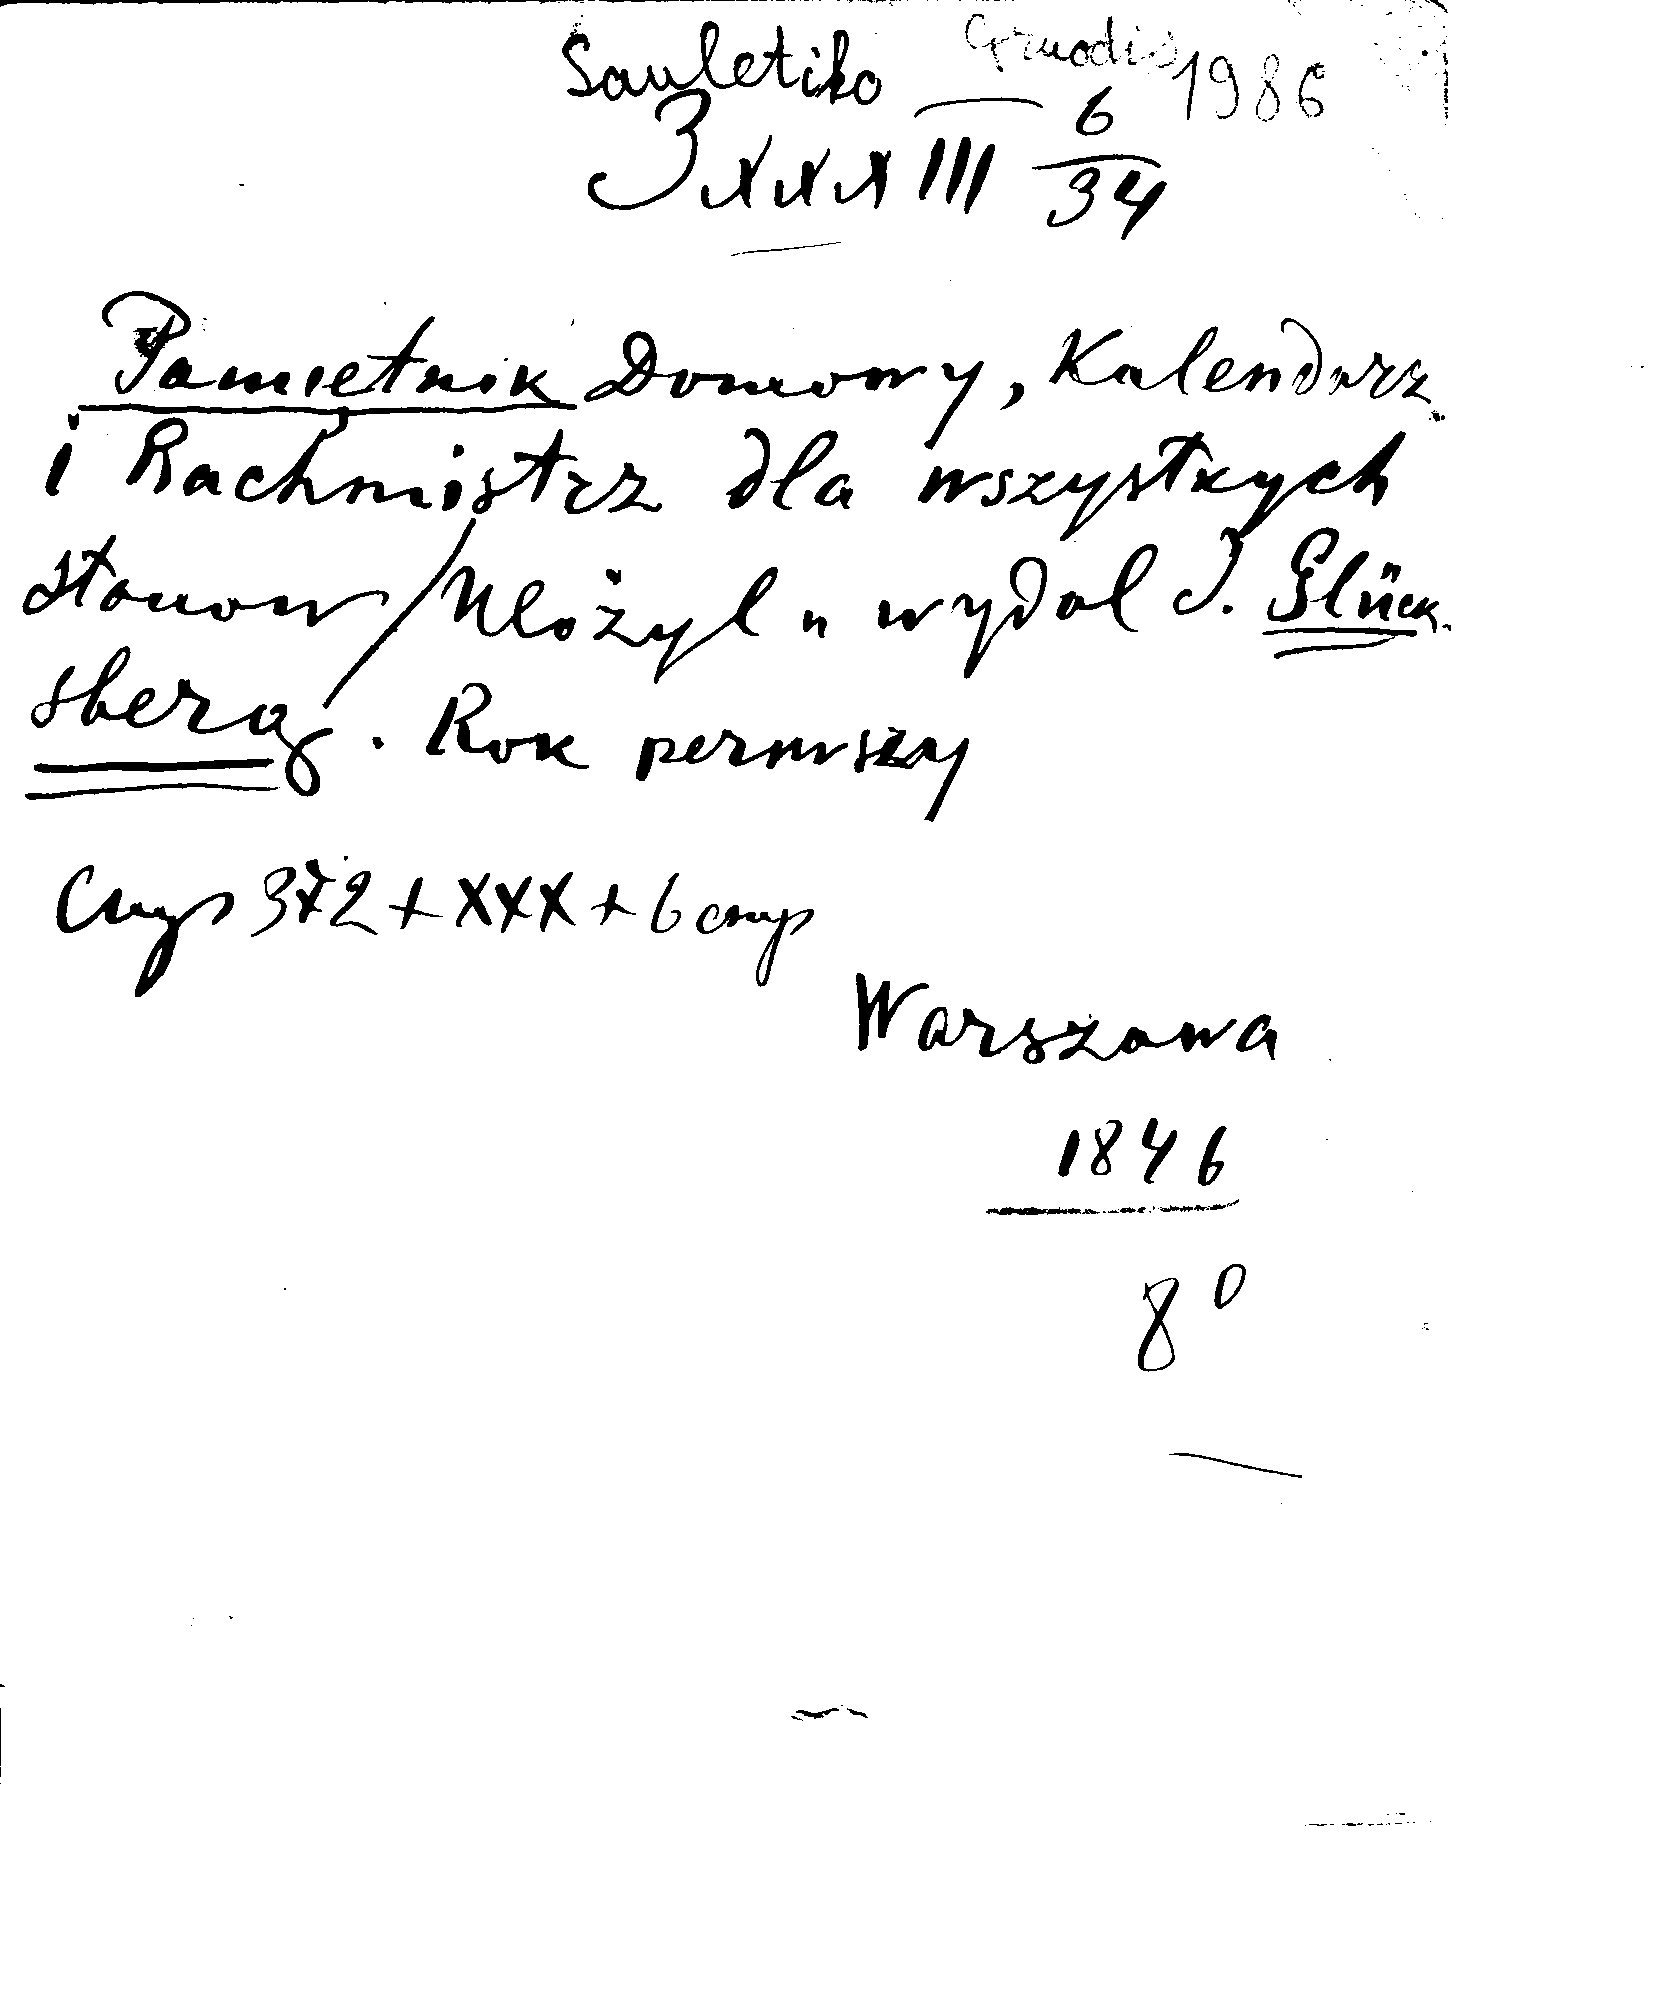 Sauletiko Gruodis 1986
3 XXX III 6/34
Pamiętnik Domowy, Kalendarz
i Rachmistrz dla wszystkych
stanow / Ułożył u wydal J. Glück
sberg. Rok pierwszy
372 + XXX + 6
Warszawa
1846
8°